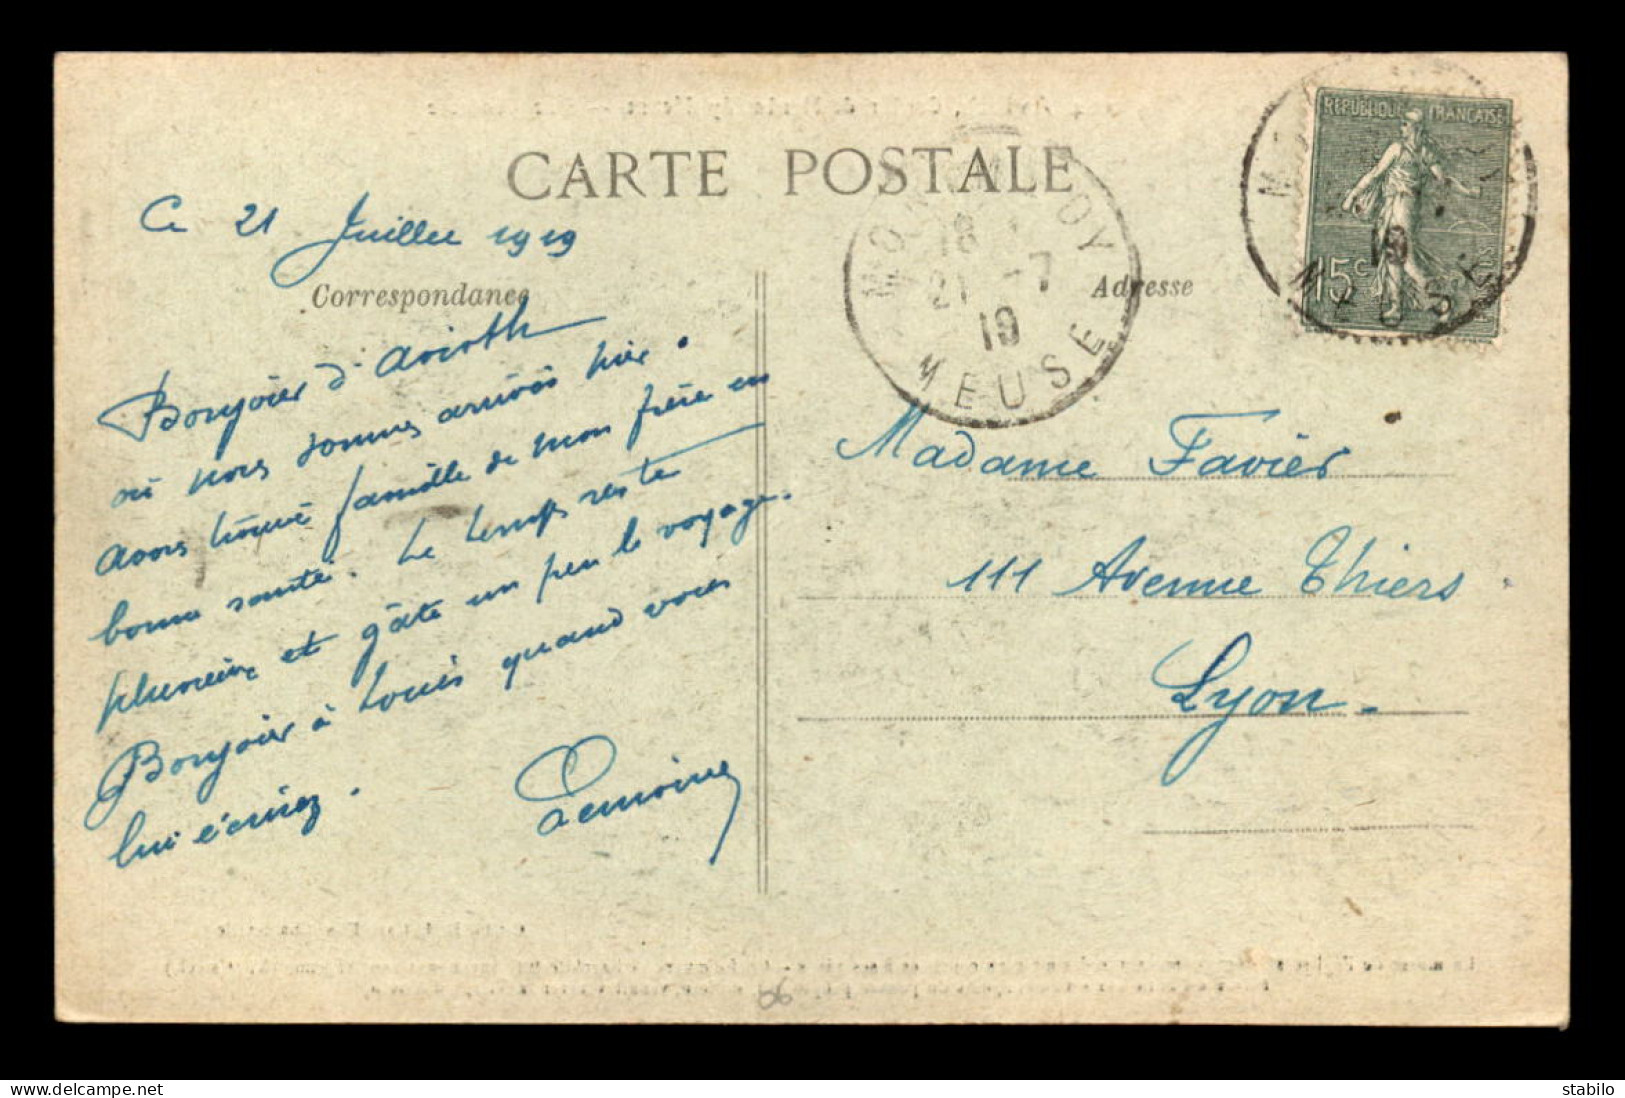 CARTE POSTALE
Ce 21 Juillet 1919
Correspondance
Adresse
RÉPUBLIQUE FRANÇAISE
15c
18
21 -7
19
MEUSE
19
MEUSE
Bonjour d'Avioth
où nous sommes arrivés hier.
avons trouvé famille de mon frère en
bonne santé. Le temps reste
pluvieux et gâte un peu le voyage.
Bonjour à Louis quand vous
lui écrirez.
Lemoine
Madame Favier
111 Avenue Thiers
Lyon.
stabilo